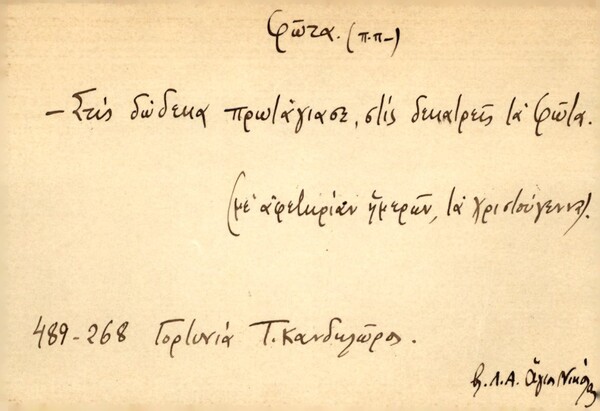 Φῶτα. (π.π-)
- Στὶς δώδεκα πρωτάγιασε, στὶς δεκατρεῖς τὰ Φῶτα.
(με ἀφετηρίαν ἡμερῶν, τὰ Χριστούγεννα).
489-268 Γορτυνία Τ. Κανδηλῶρος.
Λ.Α. ἅγιος